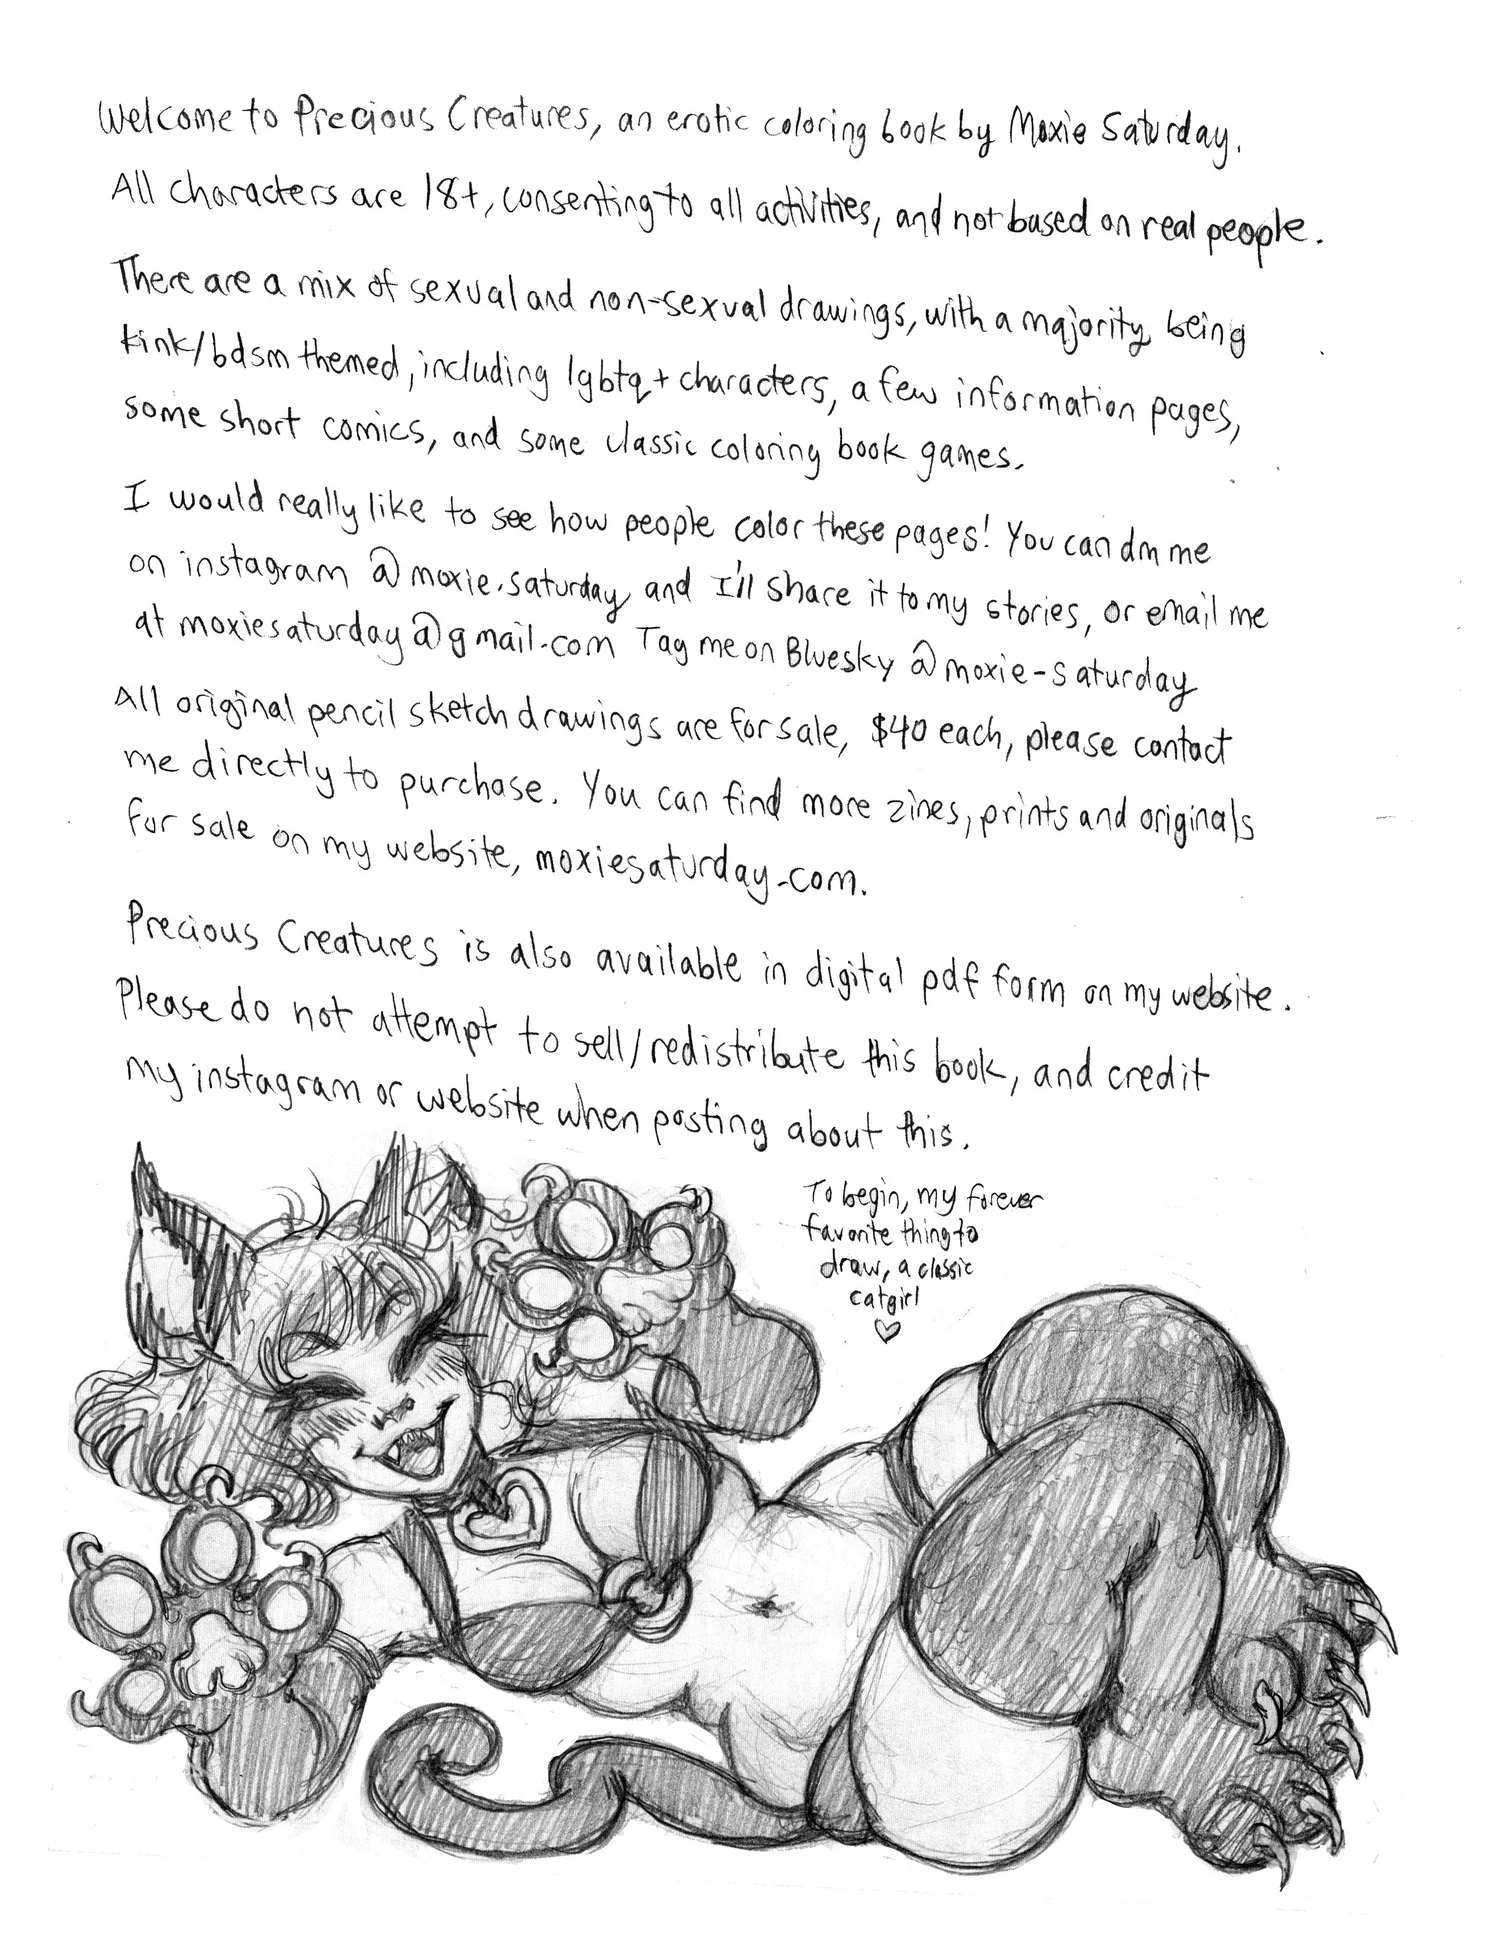 Welcome to Precious Creatures, an erotic coloring book by Moxie Saturday.
All characters are 18+, consenting to all activities, and not based on real people.
There are a mix of sexual and non-sexual drawings, with a majority being
kink/bdsm themed, including lgbtq+ characters, a few information pages,
some short comics, and some classic coloring book games.
I would really like to see how people color these pages! You can dm me
on instagram @moxie.saturday and I'll share it to my stories, or email me
at moxiesaturday@gmail.com Tag me on Bluesky @moxie-saturday
All original pencil sketch drawings are for sale, $40 each, please contact
me directly to purchase. You can find more zines, prints and originals
for sale on my website, moxiesaturday.com.
Precious Creatures is also available in digital pdf form on my website.
Please do not attempt to sell/redistribute this book, and credit
my instagram or website when posting about this.
To begin, my forever
favorite thing to
draw, a classic
catgirl
♡